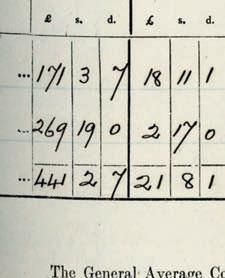 £ s. d. £ s. d.
... 171 3 7 18 11 1
... 269 19 0 2 17 0
... 441 2 7 21 8 1
The General Average Co